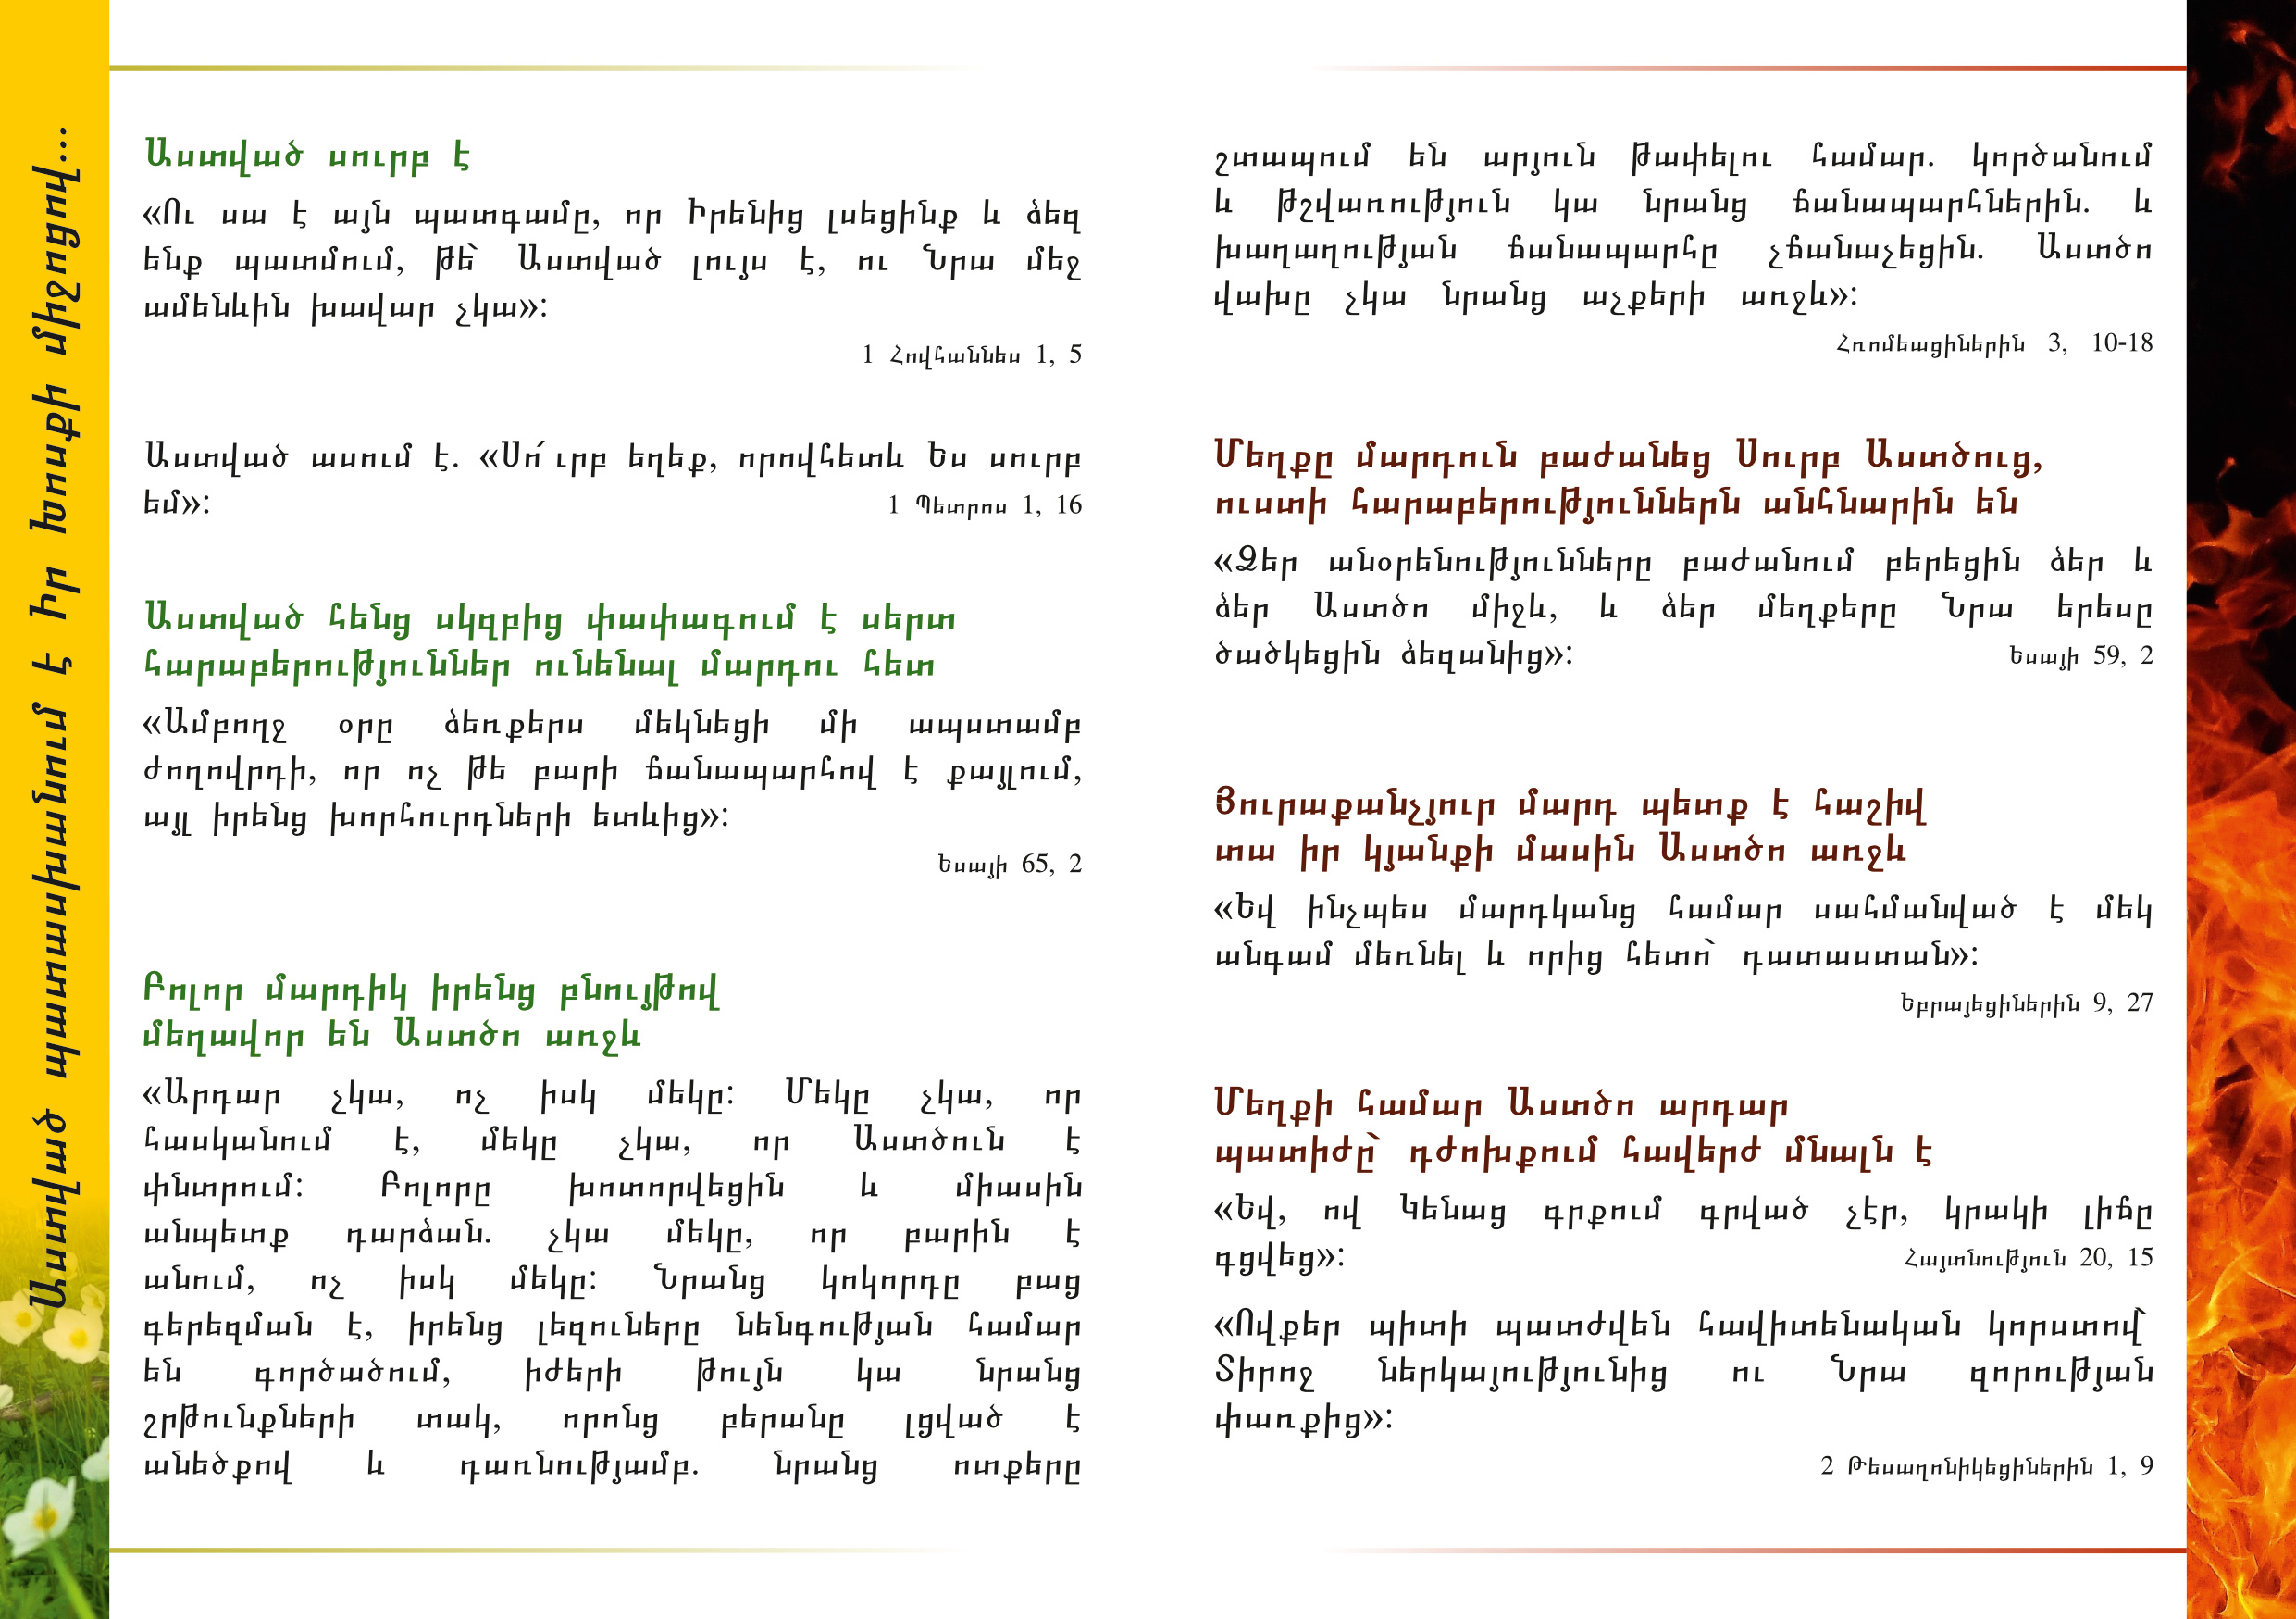 Աստված պատասխանում է Իր Խոսքի միջոցով...
Աստված սուրբ է
«Ու սա է այն պատգամը, որ Իրենից լսեցինք և ձեզ
ենք պատմում, թե՝ Աստված լույս է, ու Նրա մեջ
ամենևին խավար չկա»:
1 Հովհաննես 1, 5
Աստված ասում է. «Սո՛ւրբ եղեք, որովհետև Ես սուրբ
եմ»: 1 Պետրոս 1, 16
Աստված հենց սկզբից փափագում է սերտ
հարաբերություններ ունենալ մարդու հետ
«Ամբողջ օրը ձեռքերս մեկնեցի մի ապստամբ
ժողովրդի, որ ոչ թե բարի ճանապարհով է քայլում,
այլ իրենց խորհուրդների ետևից»:
Եսայի 65, 2
Բոլոր մարդիկ իրենց բնույթով
մեղավոր են Աստծո առջև
«Արդար չկա, ոչ իսկ մեկը: Մեկը չկա, որ
հասկանում է, մեկը չկա, որ Աստծուն է
փնտրում: Բոլորը խոտորվեցին և միասին
անպետք դարձան. չկա մեկը, որ բարին է
անում, ոչ իսկ մեկը: Նրանց կոկորդը բաց
գերեզման է, իրենց լեզուները նենգության համար
են գործածում, իժերի թույն կա նրանց
շրթունքների տակ, որոնց բերանը լցված է
անեծքով և դառնությամբ. նրանց ոտքերը
շտապում են արյուն թափելու համար. կործանում
և թշվառություն կա նրանց ճանապարհներին. և
խաղաղության ճանապարհը չճանաչեցին. Աստծո
վախը չկա նրանց աչքերի առջև»:
Հռոմեացիներին 3, 10-18
Մեղքը մարդուն բաժանեց Սուրբ Աստծուց,
ուստի հարաբերություններն անհնարին են
«Ձեր անօրենությունները բաժանում բերեցին ձեր և
ձեր Աստծո միջև, և ձեր մեղքերը Նրա երեսը
ծածկեցին ձեզանից»: Եսայի 59, 2
Յուրաքանչյուր մարդ պետք է հաշիվ
տա իր կյանքի մասին Աստծո առջև
«Եվ ինչպես մարդկանց համար սահմանված է մեկ
անգամ մեռնել և որից հետո՝ դատաստան»:
Եբրայեցիներին 9, 27
Մեղքի համար Աստծո արդար
պատիժը՝ դժոխքում հավերժ մնալն է
«Եվ, ով Կենաց գրքում գրված չէր, կրակի լիճը
գցվեց»: Հայտնություն 20, 15
«Ովքեր պիտի պատժվեն հավիտենական կորստով՝
Տիրոջ ներկայությունից ու Նրա զորության
փառքից»:
2 Թեսաղոնիկեցիներին 1, 9